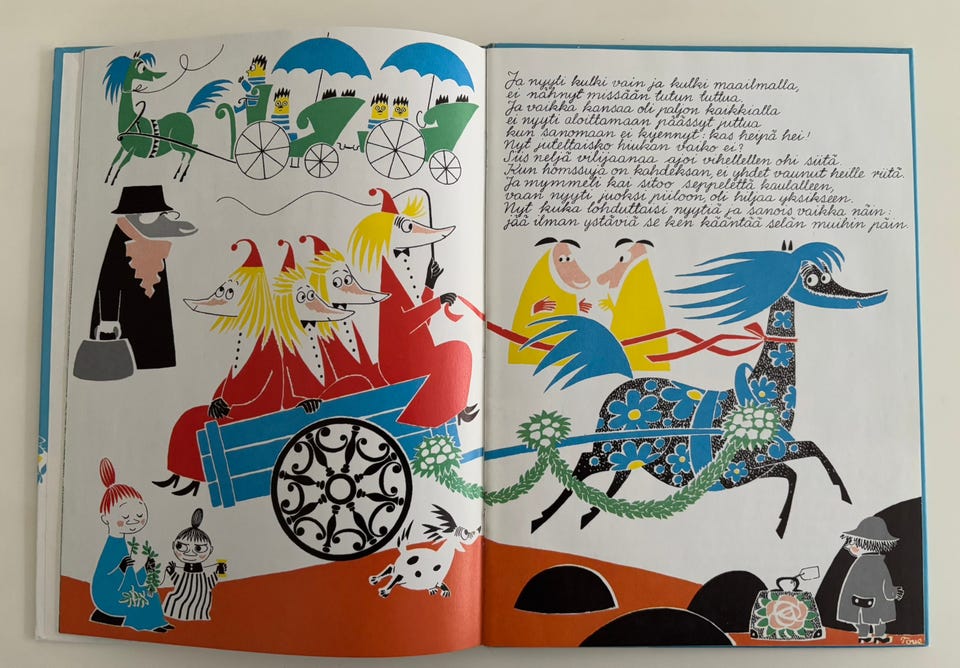 Ja nyyti kulki vain ja kulki maailmalla,
ei nähnyt missään tutun tuttua.
Ja vaikka kansaa oli paljon kaikkialla
ei nyyti aloittamaan päässyt juttua
kun sanomaan ei kyennyt: kas heipä hei!
Nyt juteltaisko hiukan vaiko ei?
Siis neljä vilijaanaa ajoi vihellellen ohi siitä.
Kun homssuja on kahdeksan, ei yhdet vaunut heille riitä.
Ja mymmeli kai sitoo seppelettä kaulalleen,
vaan nyyti juoksi piiloon oli hiljaa yksikseen.
Nyt kuka lohduttaisi nyytiä ja sanois vaikka näin:
jää ilman ystäviä se ken kääntää selän muihin päin.
Tove